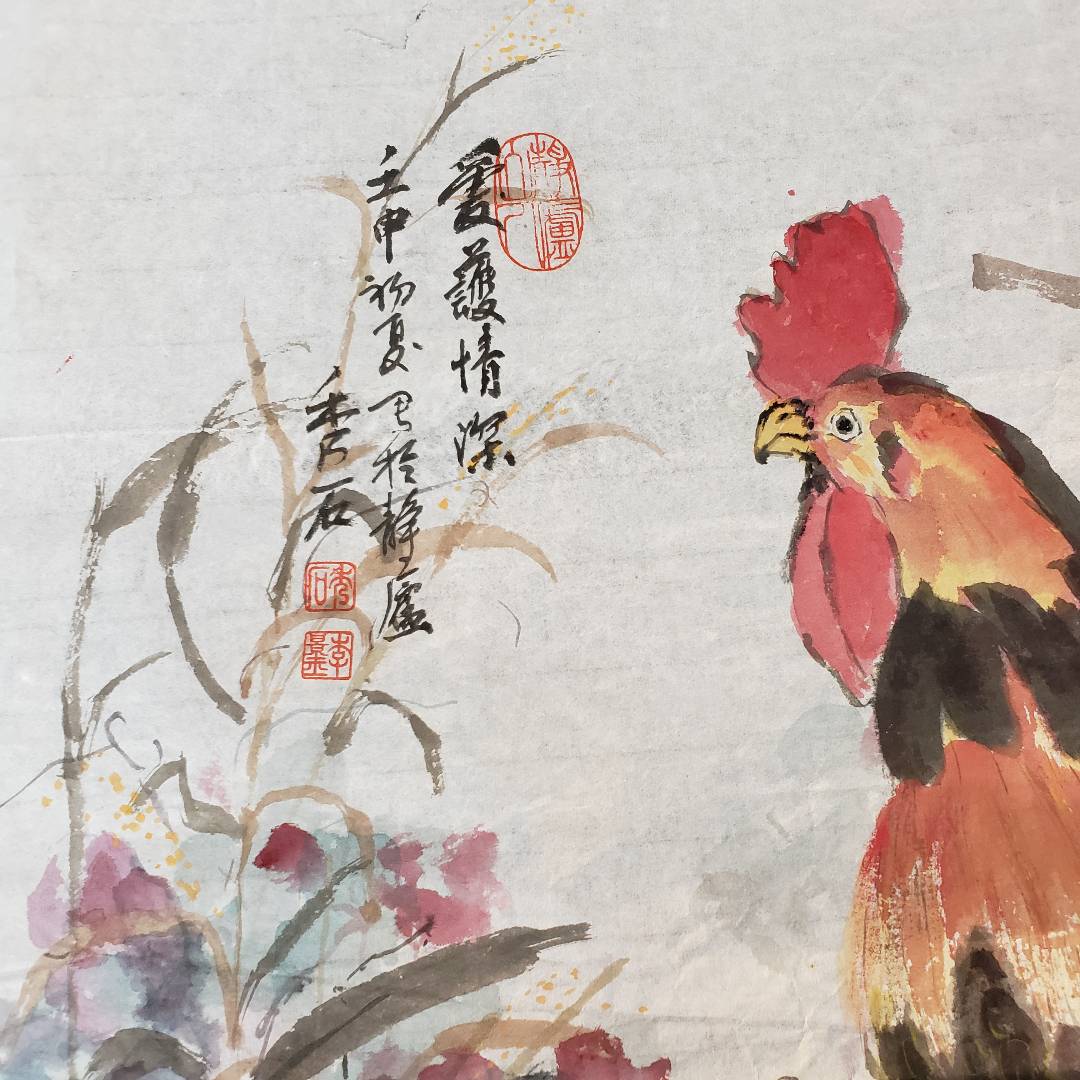 愛護情深
壬申初夏写於靜廬
秀石
秀石